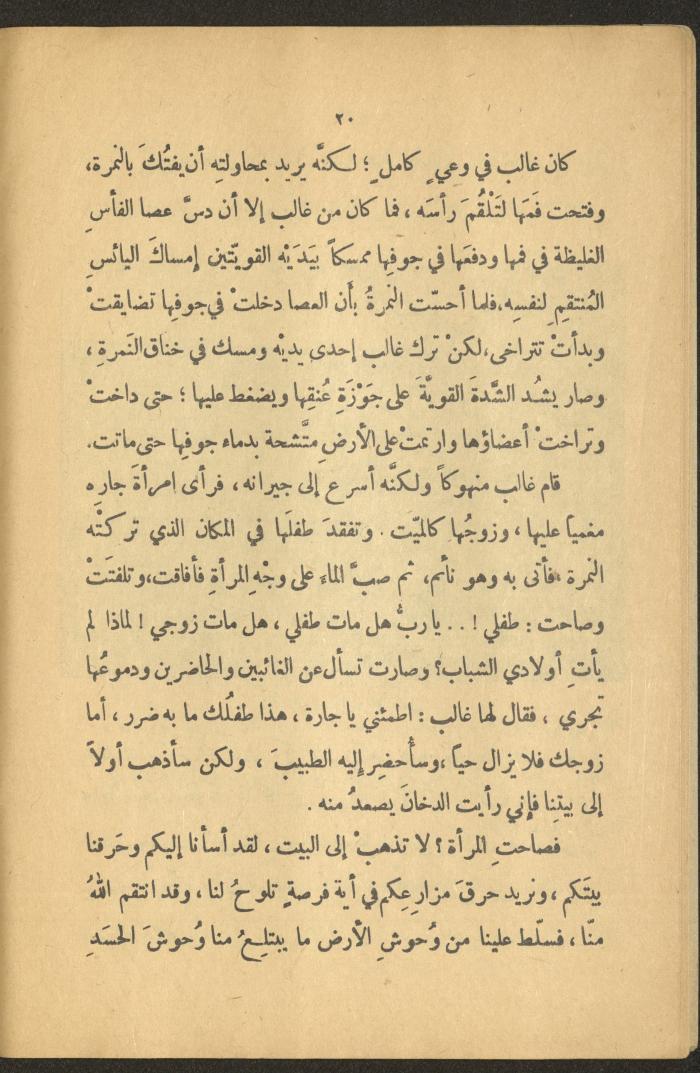 ٢٠
كان غالب في وعيٍ كاملٍ ؛ لكنَّه يريد بمحاولتِه أن يفتُكَ بالنمرة،
وفتحت فَمَها لتَلْقُمَ رأسَه ، فما كان من غالب إلا أن دسَّ عصا الفأسِ
الغليظة في فمها ودفعَها في جوفِها ممسكاً بيَدَيْه القويّتين إمساكَ اليائسِ
المُنتقِمِ لنفسِه، فلما أحسّت النمرةُ بأَن العصا دخلتْ في جوفِها تضايقتْ
وبدأتْ تتراخى، لكنْ ترك غالب إحدى يديْه ومسك في خناق النَمرةِ ،
وصار يشُد الشَّدةَ القويَّةَ على جَوْزَةِ عُنقِها ويضغط عليها ؛ حتى داختْ
وتراختْ أعضاؤها وارتمتْ على الأرضِ متَّشحة بدماء جوفِها حتى ماتت.
قام غالب منهوكاً ولكنَّه أسرع إلى جيرانه ، فرأى امرأةَ جاره
مغمياً عليها ، وزوجُها كالميّت . وتفقدَ طفلَها في المكان الذي تركتْه
النمرة فأتى به وهو نائم، ثم صبَّ الماء على وجْهِ المرأةِ فأفاقت، وتلفتَتْ
وصاحت : طفلي ! . . يا ربُّ هل مات طفلي ، هل مات زوجي ! لماذا لم
يأتِ أولادي الشباب؟ وصارت تسأل عن الغائبين والحاضرين ودموعُها
تجري ، فقال لها غالب : اطمئني يا جارة ، هذا طفلُك ما به ضرر ، أما
زوجك فلا يزال حياً ، وسأُحضِر إليه الطبيبَ ، ولكن سأذهب أولاً
إلى بيتِنا فإني رأيت الدخانَ يصعدُ منه .
فصاحتِ المرأة ؟ لا تذهبْ إلى البيت ، لقد أسأنا إليكم وحَرقنا
بيتَكم ، ونريد حرقَ مزارعِكم في أية فرصةٍ تلوحُ لنا ، وقد انتقم اللهُ
منّا ، فسلّط علينا من وُحوشِ الأرض ما يبتلعُ منا وُحوشَ الحسَدِ